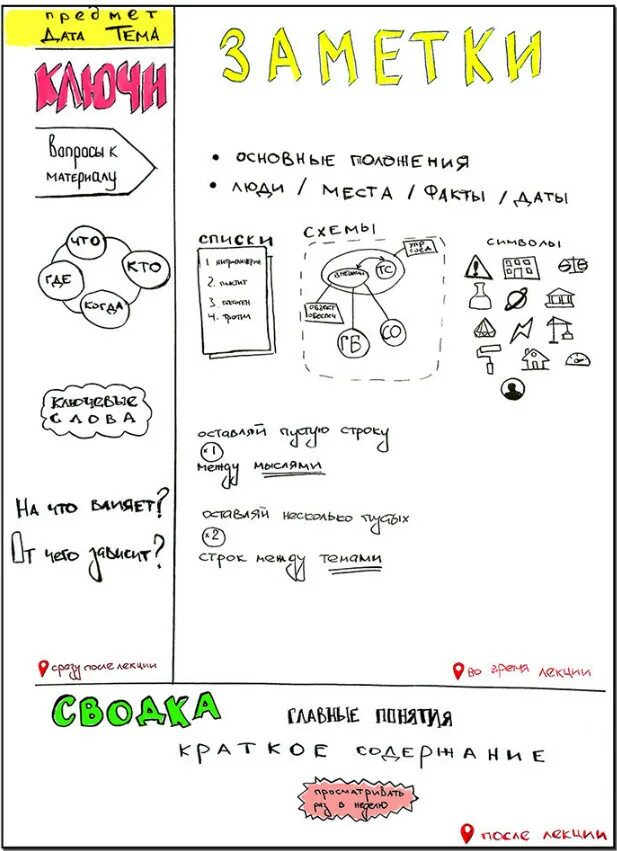 Предмет
Дата Тема
Ключи
Вопросы к
материалу
что
кто
где
когда
Ключевые
слова
На что влияет?
От чего зависит?
сразу после лекции
Заметки
• основные положения
• люди / места / факты / даты
списки
1
2.
3
4.
схемы
упр
соед
ТС
объект
обеспеч
ГБ
СО
символы
оставляй пустую строку
×1
между мыслями
оставляй несколько пустых
×2
строк между темами
во время лекции
Сводка
главные понятия
краткое содержание
просматривать
раз в неделю
после лекции